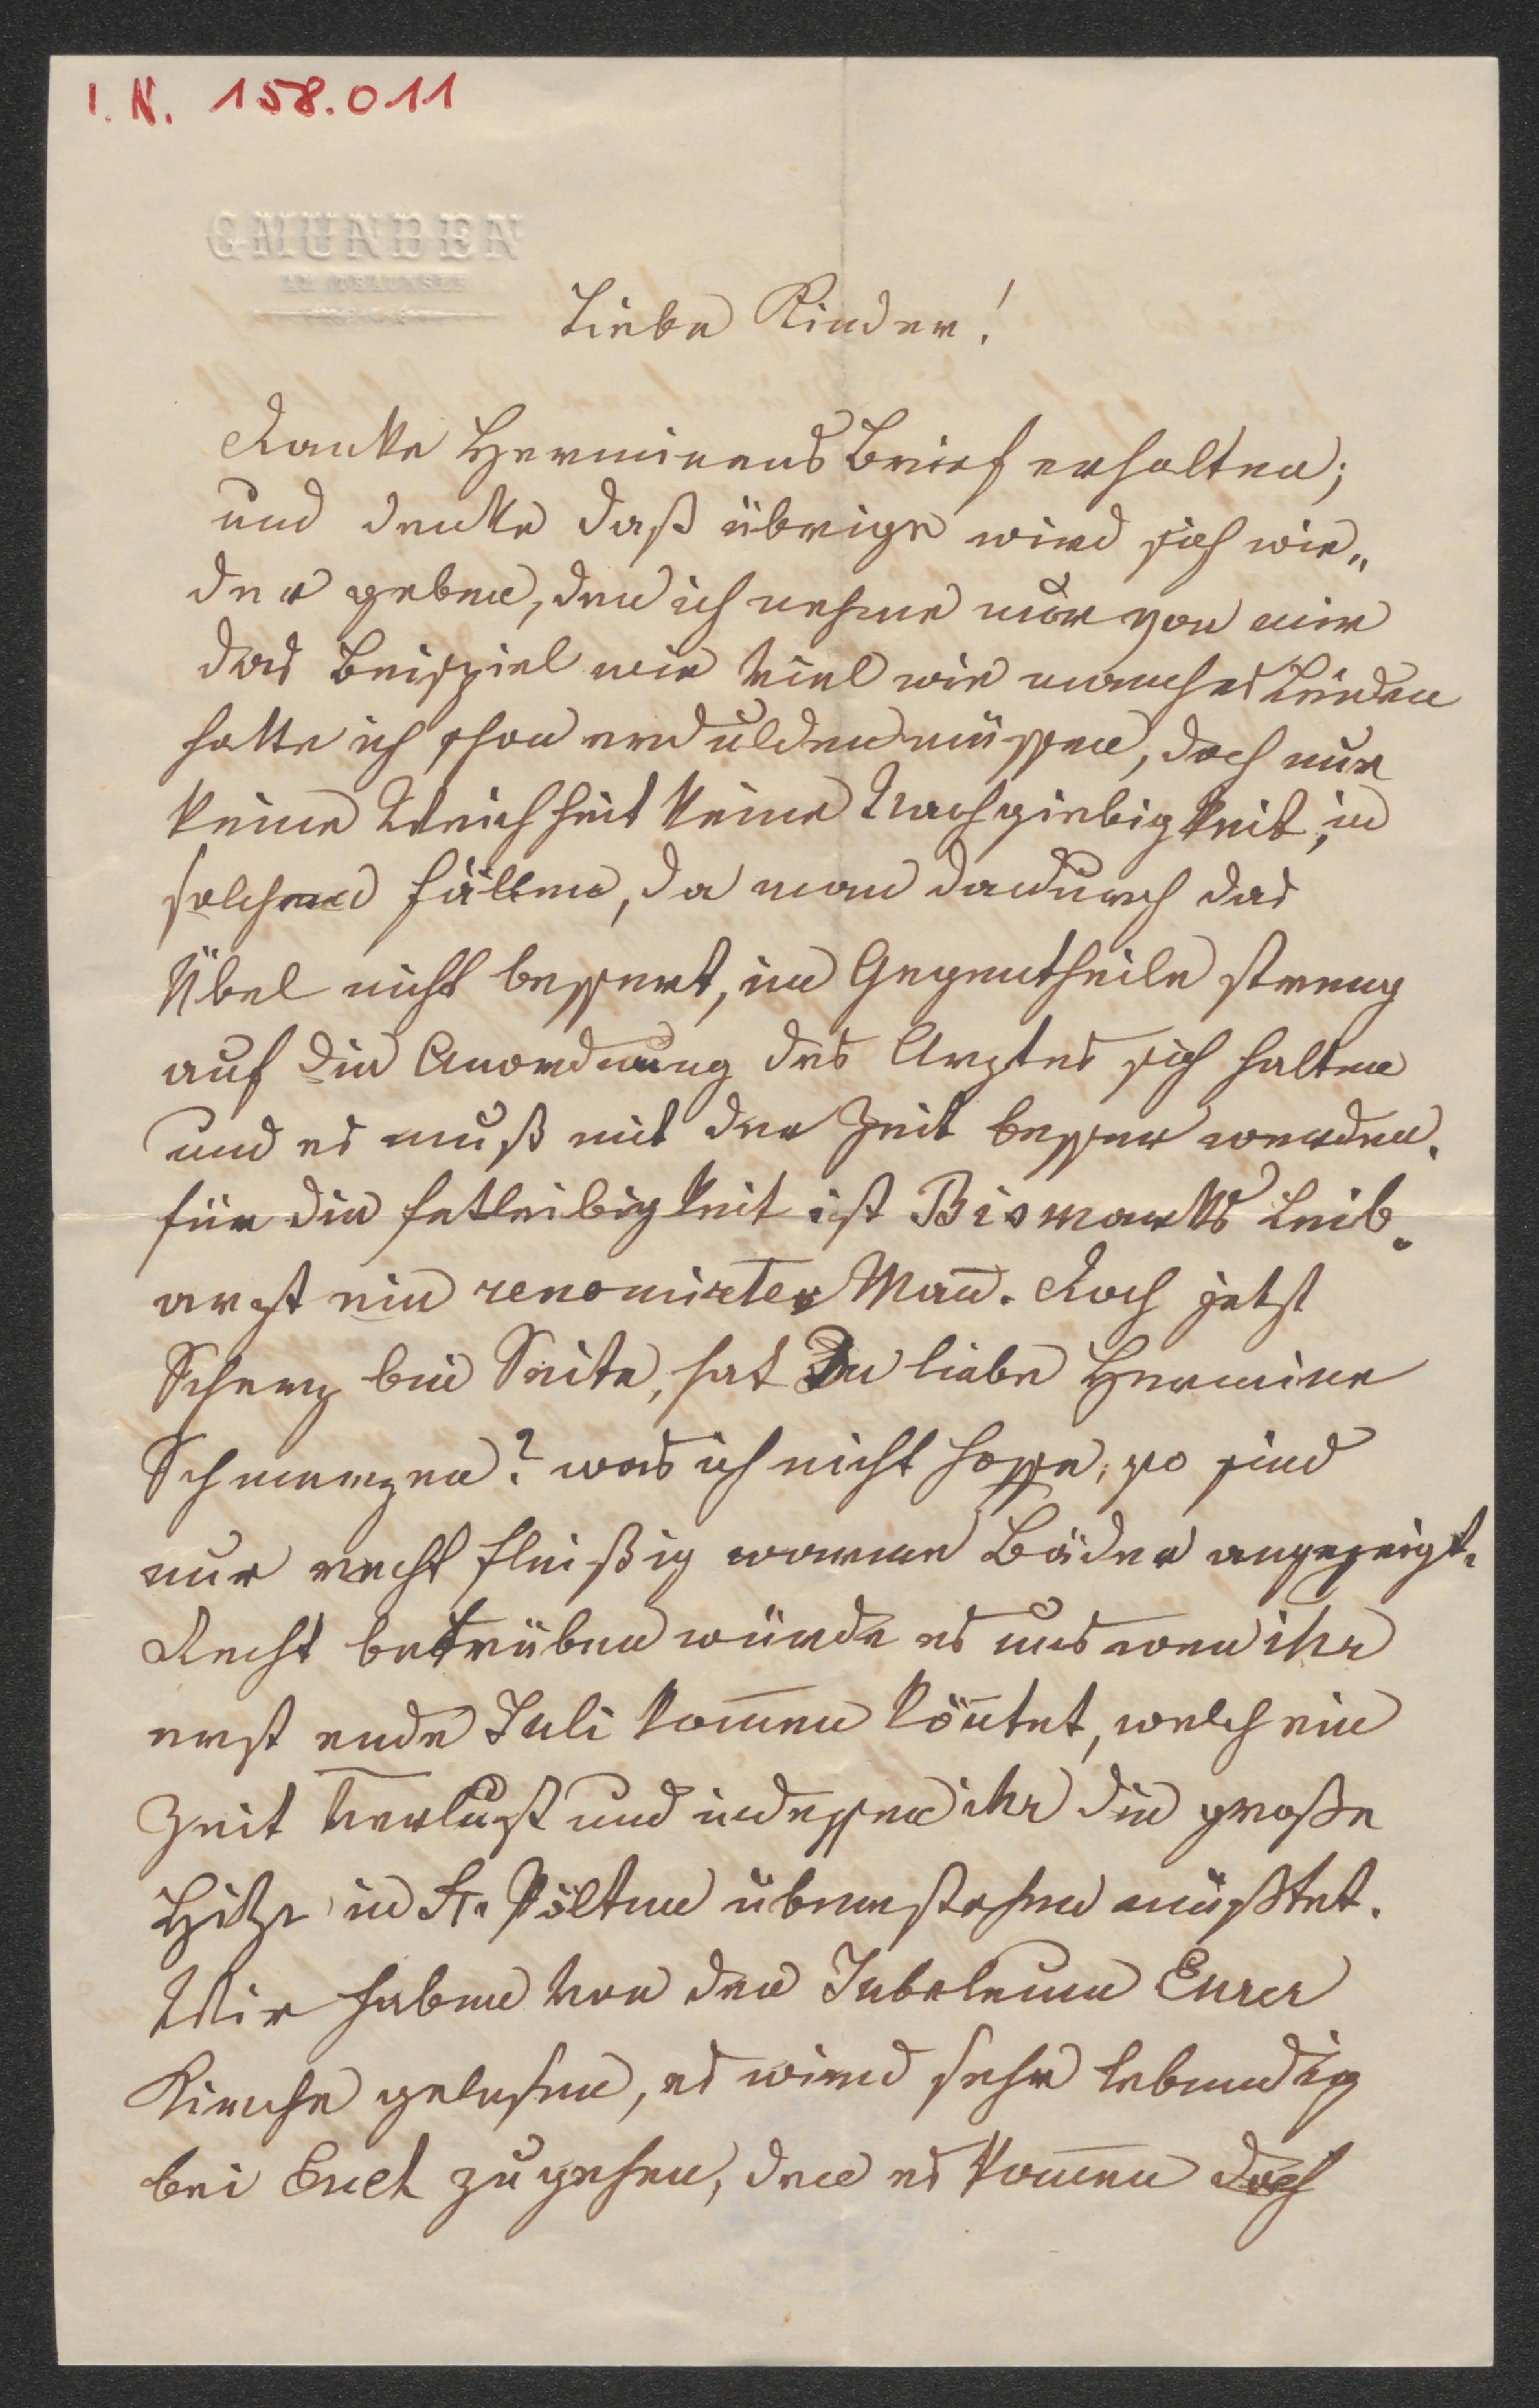 I.N. 158.011
GMUNDEN
AM TRAUNSEE
Liebe Kinder!
Danke Herminens Brief erhalten;
und denke daß übrige wird sich wie„
der geben, den ich nehme nur von mir
das Beispiel wie viel wie manches Leiden
hatte ich schon erdulden müssen, doch nur
keine Weichheit keine Nachgiebigkeit, in
solchen fällen, da man dadurch das
Übel nicht bessert, im Gegentheile streng
auf die Anordnung des Arztes sich halten
und es muß mit der Zeit besser werden.
für die fetleibigkeit ist Bismarks Leib„
arzt ein renomirter Man̄. Doch jetzt
Scherz bei Seite, hat Die liebe Hermine
Schmerzen? was ich nicht hoffe, so sind
nur recht fleißig warme Bäder angezeigt.
Recht betrüben würde es uns wen ihr
erst ende Juli kom̄en kön̄tet, welch ein
Zeit Verlust und indessen ihr die große
Hitze in St. Pölten überstehen müßtet.
Wir haben von den Jubeleum Eurer
Kirche gelesen, es wird sehr lebendig
bei Euch zugehen, den es kom̄en doch